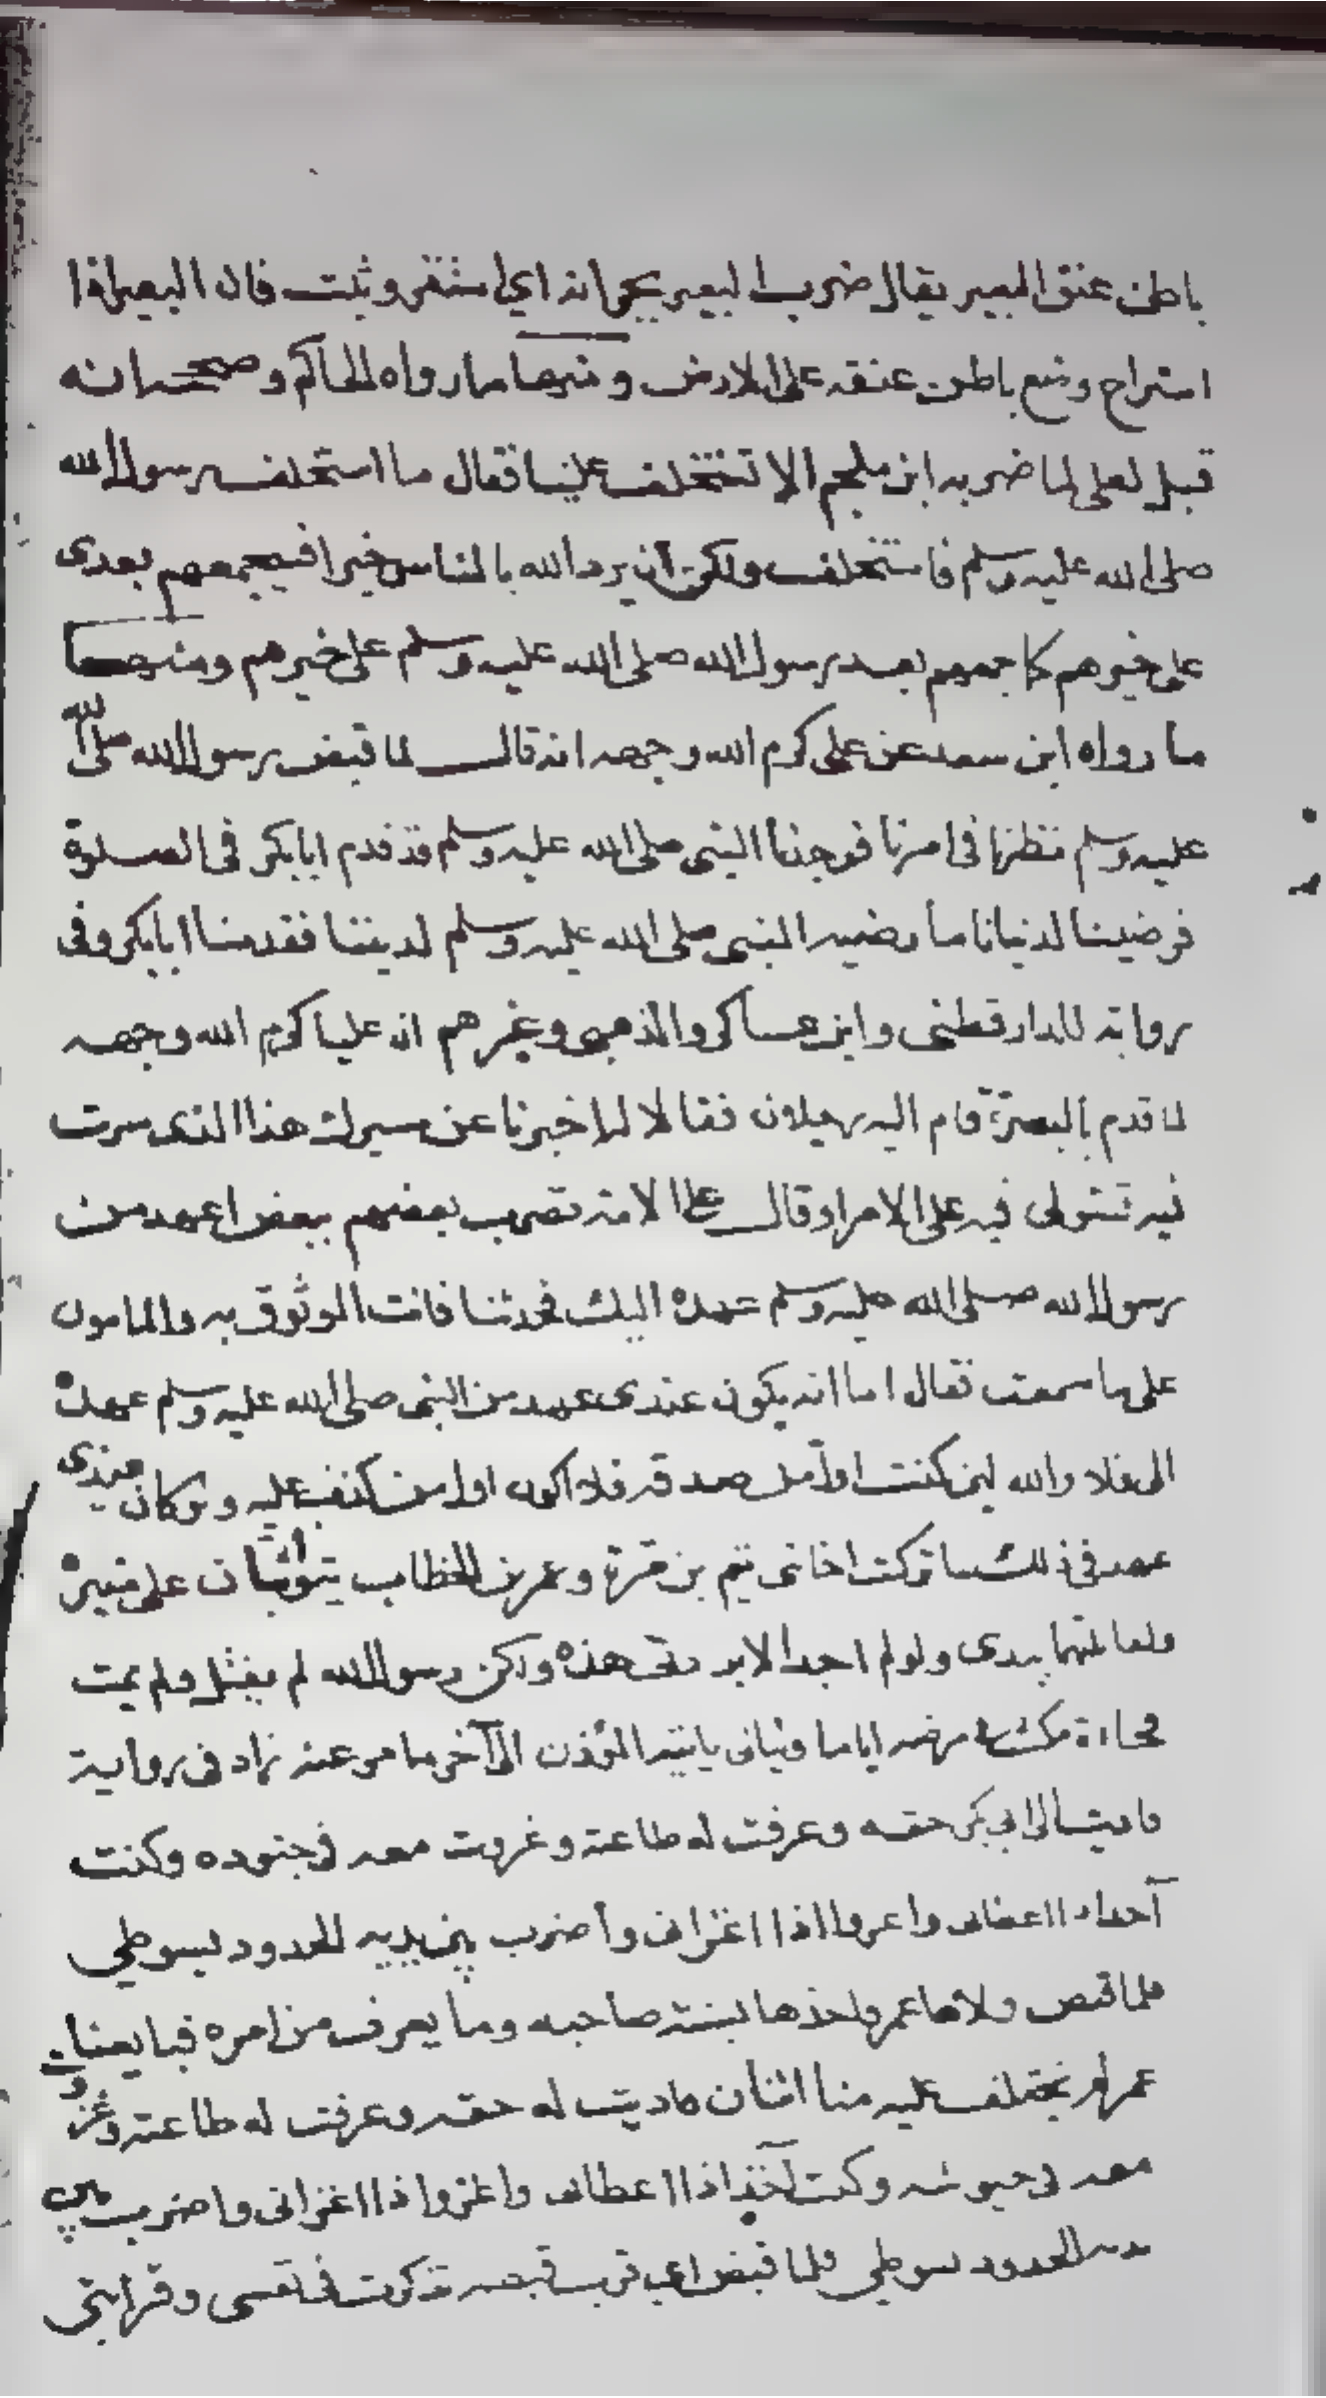 باطن عنق البعير يقال ضرب البعير بجرانه اي استقر وثبت فان البعير اذا
استراح وضع باطن عنقه على الارض ومنها ما رواه الحاكم وصححه انه
قيل لعلي لما ضربه ابن ملجم الا تستخلف علينا فقال ما استخلف رسول الله
صلى الله عليه وسلم فاستخلف ولكن ان يرد الله بالناس خيرا فسيجمعهم بعدى
على خيرهم كما جمعهم بعد رسول الله صلى الله عليه وسلم على خيرهم ومنها
ما رواه ابن سعد عن على كرم الله وجهه انه قال لما قبض رسول الله صلى الله
عليه وسلم نظرنا فى امرنا فوجدنا النبى صلى الله عليه وسلم قد قدم ابا بكر فى الصلوة
فرضينا لدنيانا ما رضيه النبى صلى الله عليه وسلم لديننا فقدمنا ابا بكر وفى
رواية للدارقطنى وابن عساكر والذهبى وغيرهم ان عليا كرم الله وجهه
لما قدم بالبصرة قام اليه رجلان فقالا له اخبرنا عن مسيرك هذا الذى سرت
فيه تتولى فيه على الامر او قال على الامة تضرب بعضهم ببعض اعهد من
رسول الله صلى الله عليه وسلم عهده اليك فحدثنا فانت الموثوق به والمامون
على ما سمعت فقال اما انه يكون عندى عهد من النبى صلى الله عليه وسلم عهده
الى فلا والله لين كنت اول من صدق به فلا اكون اول من كذب عليه ولو كان عندى
عهد فى ذلك ما تركت اخا بنى تيم بن مرة وعمر بن الخطاب يثوبان على منبره
ولقاتلتهما بيدى ولو لم اجد الا بردتى هذه ولكن رسول الله لم يقتل ولم يمت
فجاءة مكث فى مرضه اياما وليالى ياتيه المؤذن الى آخر ما مر عنه زاد فى رواية
فاديت الى ابى بكر حقه وعرفت له طاعته وغزوت معه فى جنوده وكنت
آخذ اذا اعطانى واغزوا اذا اغزانى وأضرب بين يديه الحدود بسوطي
فلما قبض ولاها عمر واخذها بسنة صاحبه وما يعرف من امره فبايعنا
عمر لم يختلف عليه منا اثنان فاديت له حقه وعرفت له طاعته وغزوت
معه فى جيوشه وكنت آخذ اذا اعطانى واغزوا اذا اغزانى واضرب بين
يديه الحدود بسوطي فلما قبض قبضه تذكرت فى نفسى وقرابتى